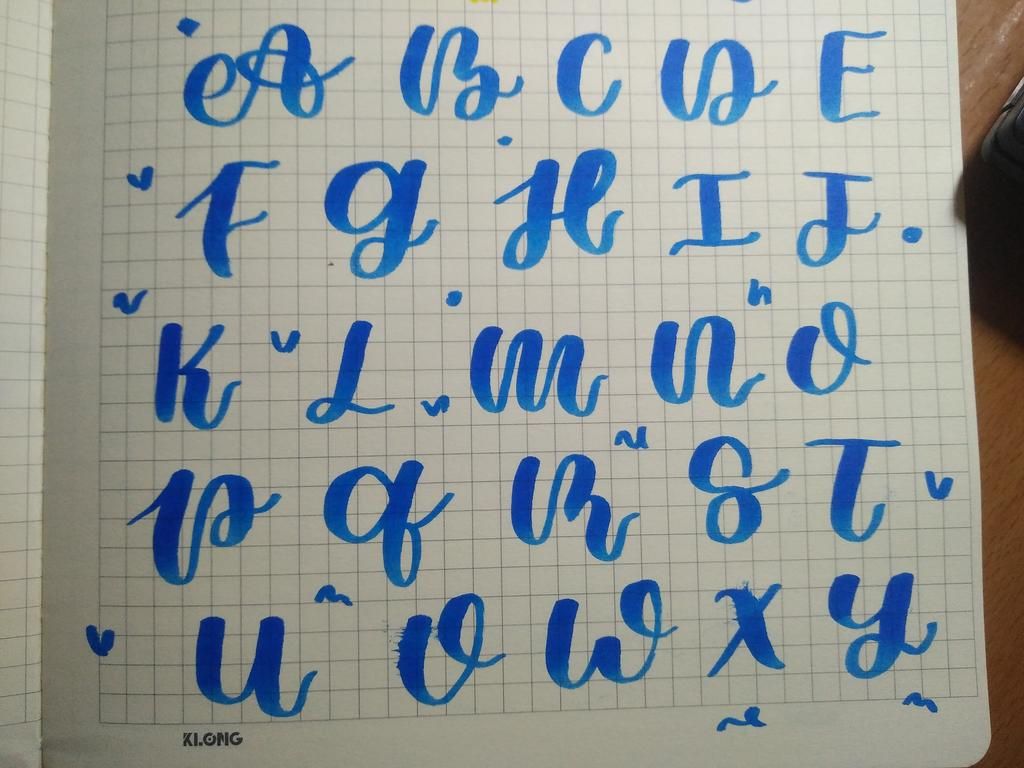 A B C D E
F G H I J
K L M N O
P Q R S T
U V W X Y
KLONG